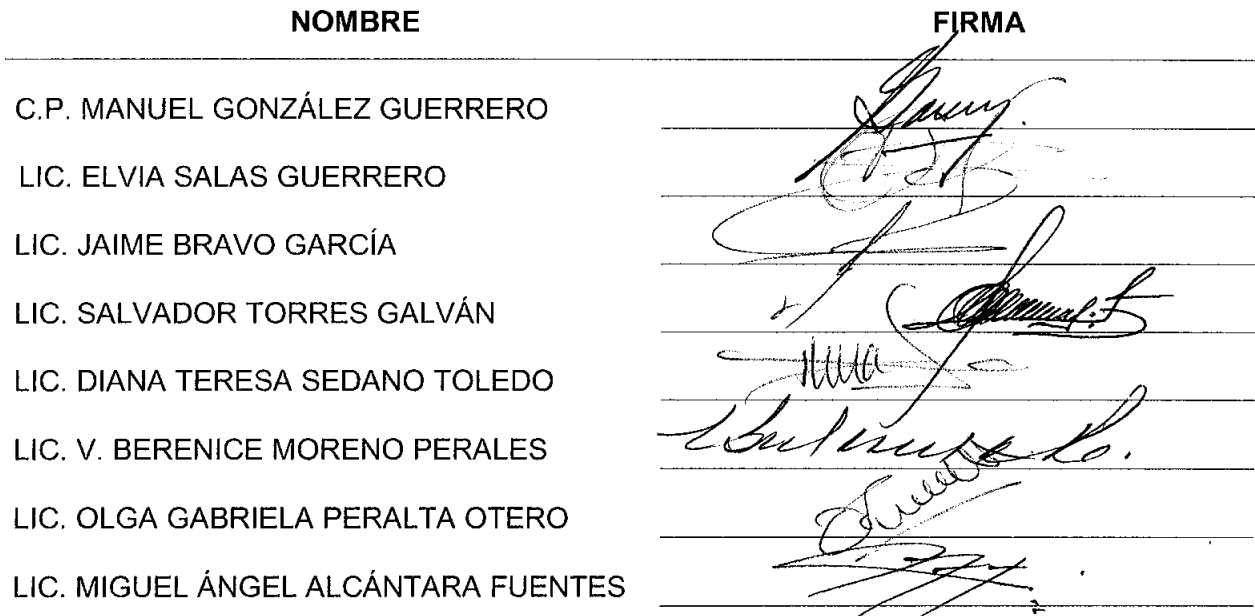 NOMBRE FIRMA
C.P. MANUEL GONZÁLEZ GUERRERO
LIC. ELVIA SALAS GUERRERO
LIC. JAIME BRAVO GARCÍA
LIC. SALVADOR TORRES GALVÁN
LIC. DIANA TERESA SEDANO TOLEDO
LIC. V. BERENICE MORENO PERALES
LIC. OLGA GABRIELA PERALTA OTERO
LIC. MIGUEL ÁNGEL ALCÁNTARA FUENTES